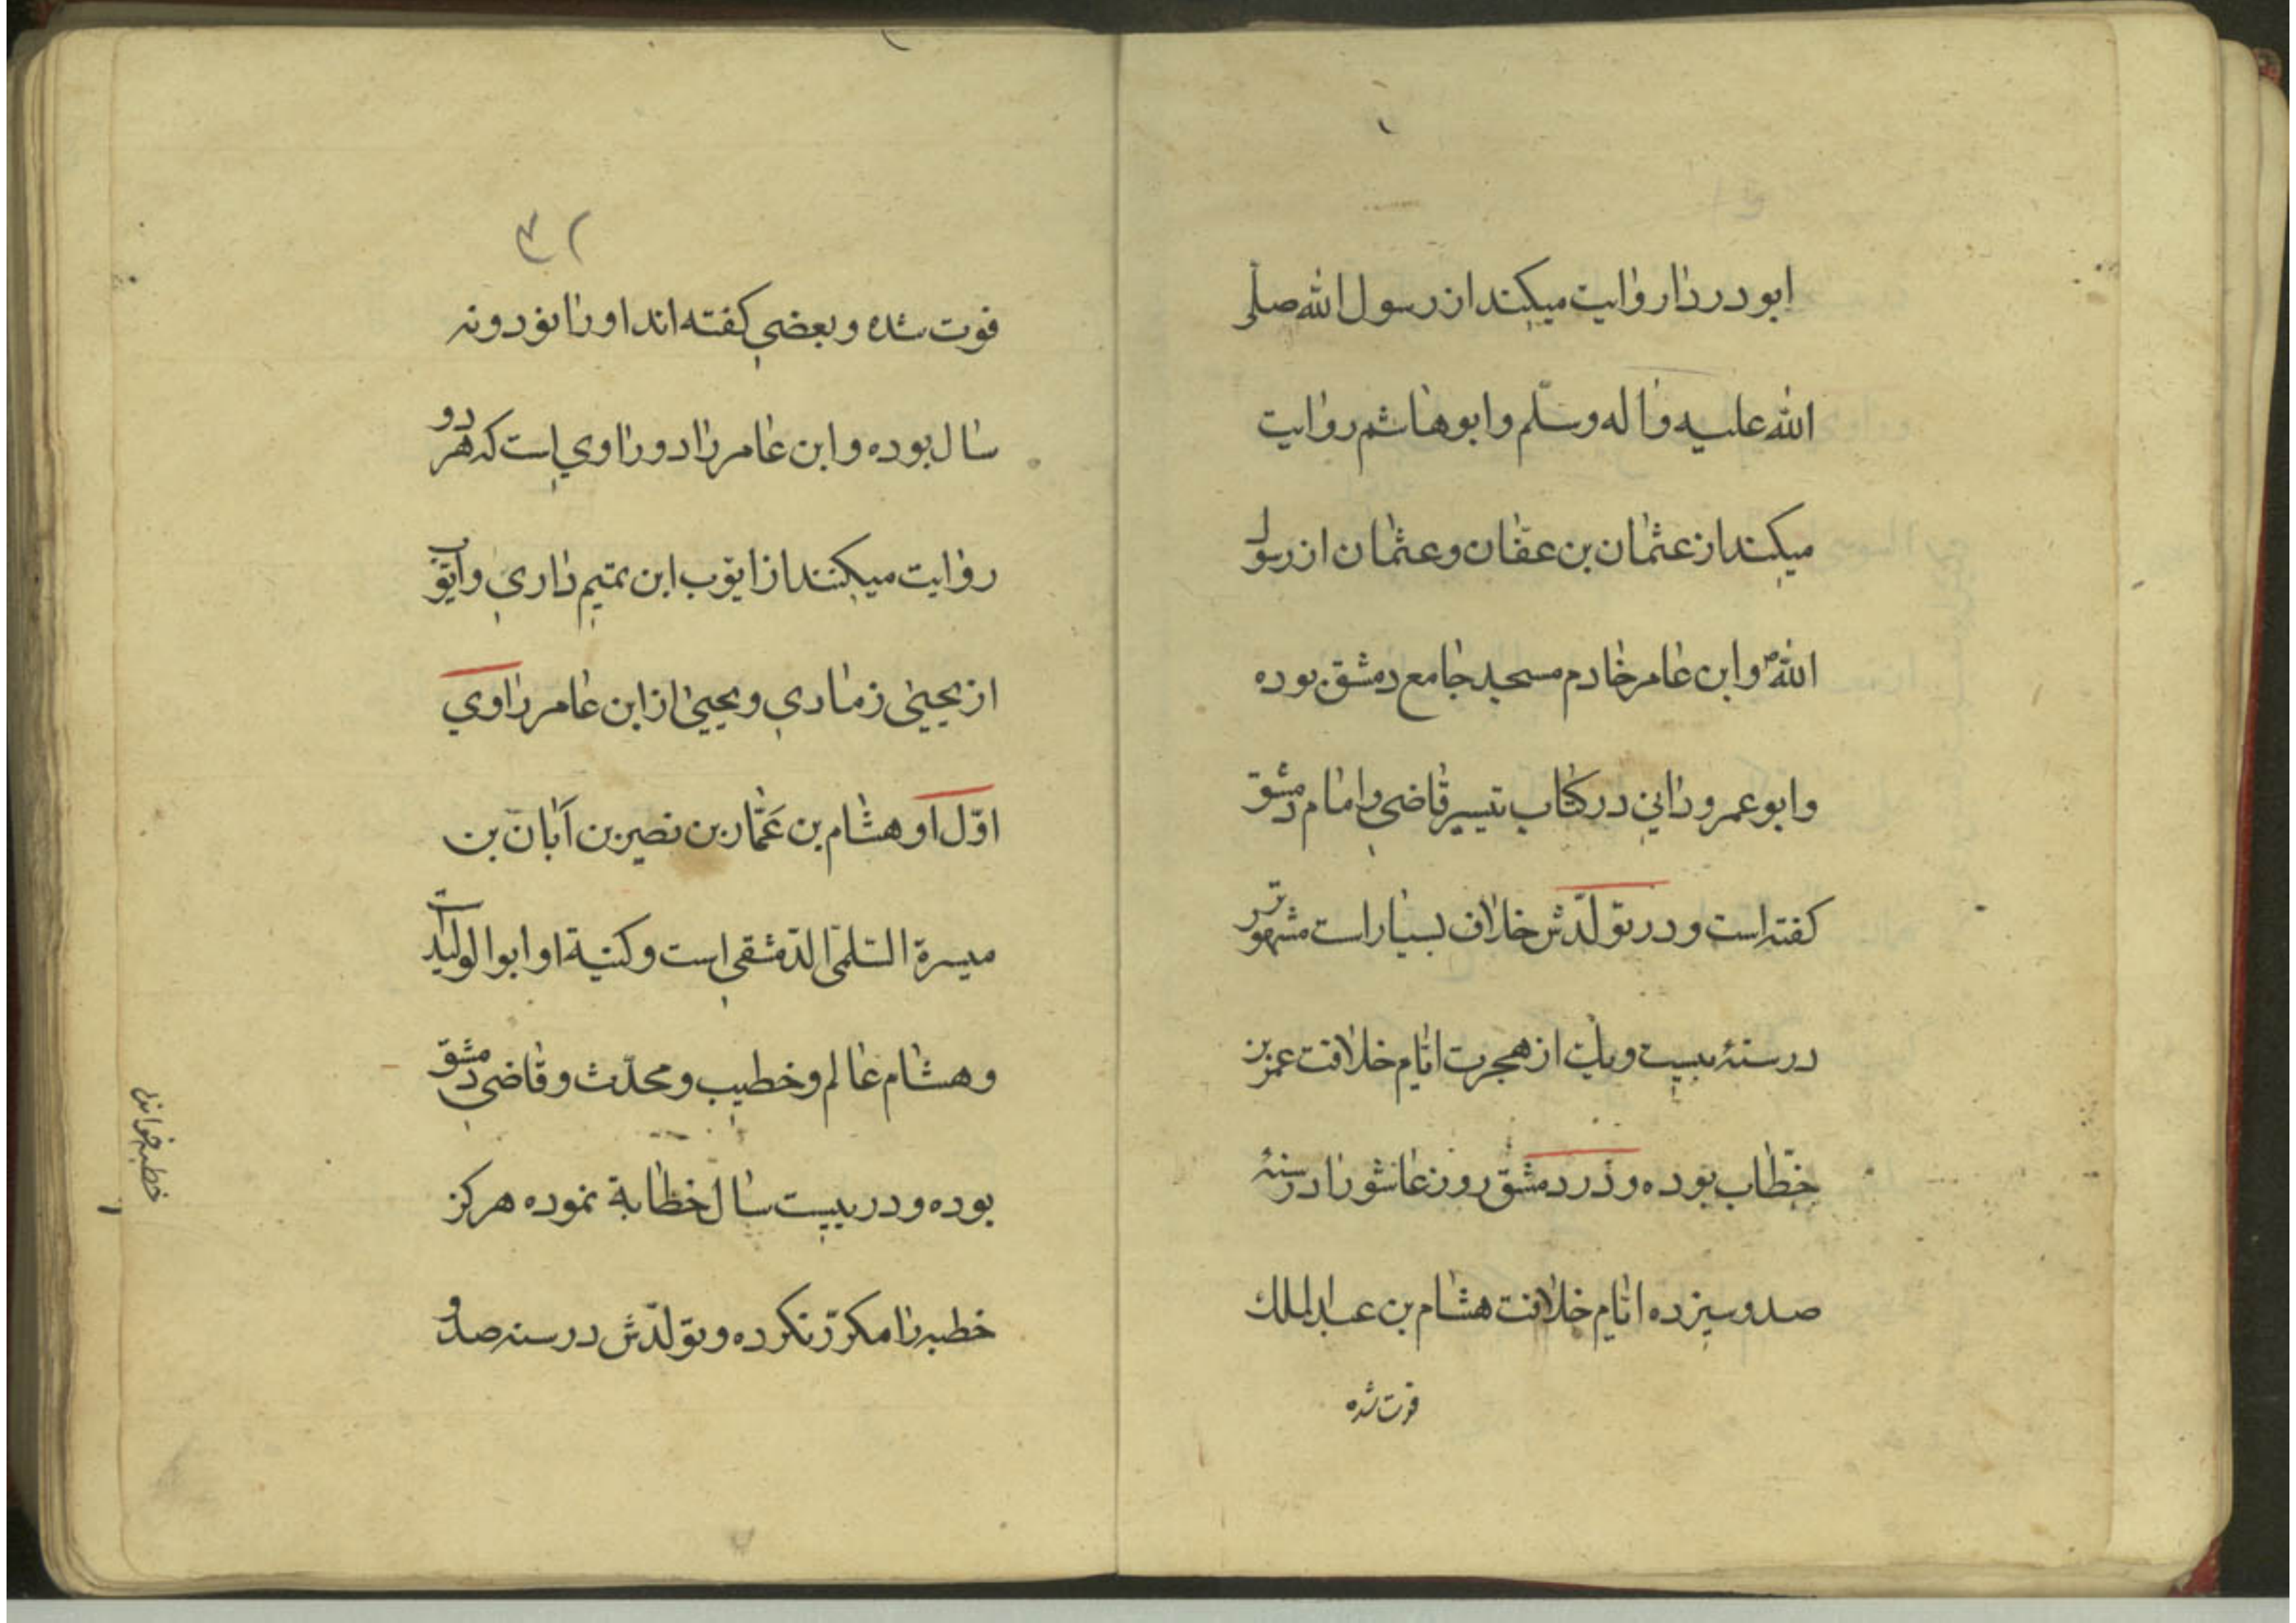 ابودردا روایت میکند از رسول الله صلّی
الله علیه و اله وسلّم و ابوهاشم روایت
میکند از عثمان بن عفّان و عثمان از رسول
اللهؐ و ابن عامر خادم مسجد جامع دمشق بوده
و ابوعمرو دانی در کتاب تیسیر قاضی و امام دمشق
کفته است و در تولّدش خلاف بسیار است مشهورتر
در سنهٔ بیست و یك از هجرت ایّام خلافت عمر بن
خطّاب بوده و در دمشق روز عاشورا در سنهٔ
صد و سیزده ایّام خلافت هشام بن عبدالملك
فوت شده
۳۲
فوت شده و بعضی کفته اند او را نود و نه
سال بوده و ابن عامر را دو راوی است که هر دو
روایت میکنند از ایّوب ابن تمیم داری و ایّوب
از یحیی زماری و یحیی از ابن عامر راوی
اوّل او هشام بن عَمّار بن نصیر بن اَبان بن
میسرة السّلمی الدّمشقی است و کنیة او ابوالولید است
و هشام عالم و خطیب و محدّث و قاضی دمشق
بوده و در بیست سال خطابة نموده هرکز
خطبه را مکرّر نکرده و تولّدش در سنه صد و
خطبه خواندن